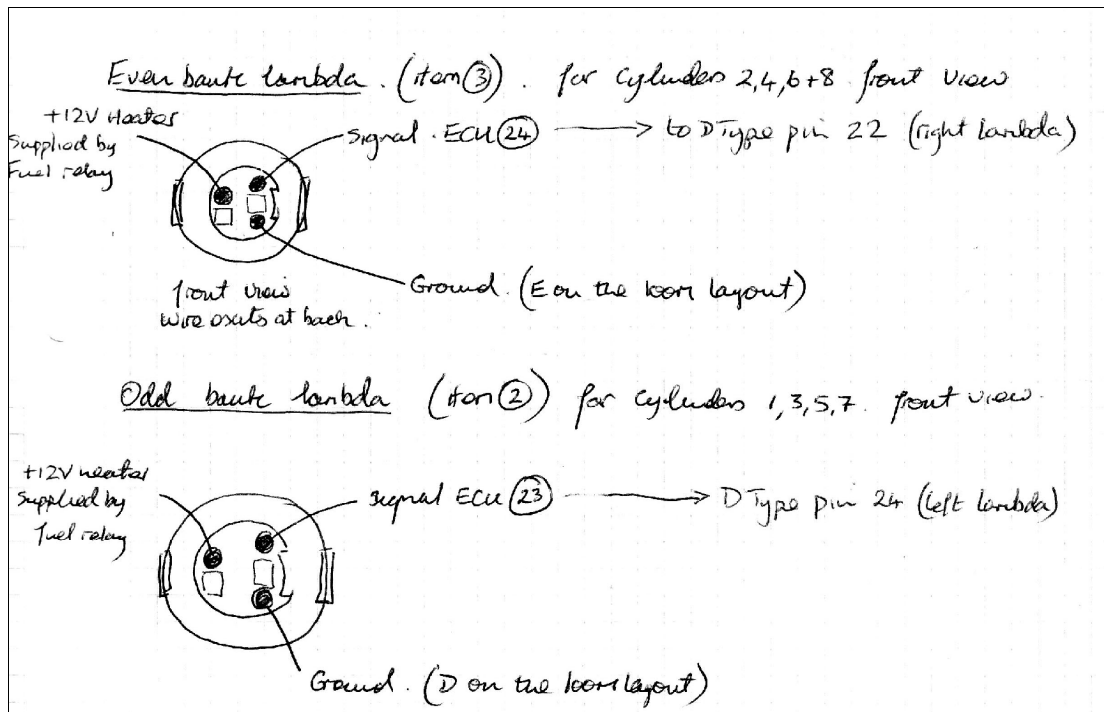 Even bank lambda. (item ③). for cylinders 2,4,6+8 front view
+12V Heater
Supplied by
Fuel relay
Signal. ECU ㉔ → to D Type pin 22 (right lambda)
Ground. (E on the loom layout)
front view
wire exits at back.
Odd bank lambda (item ②) for cylinders 1,3,5,7. front view.
+12V heater
Supplied by
fuel relay
signal ECU ㉓ → D Type pin 24 (left lambda)
Ground. (D on the loom layout)